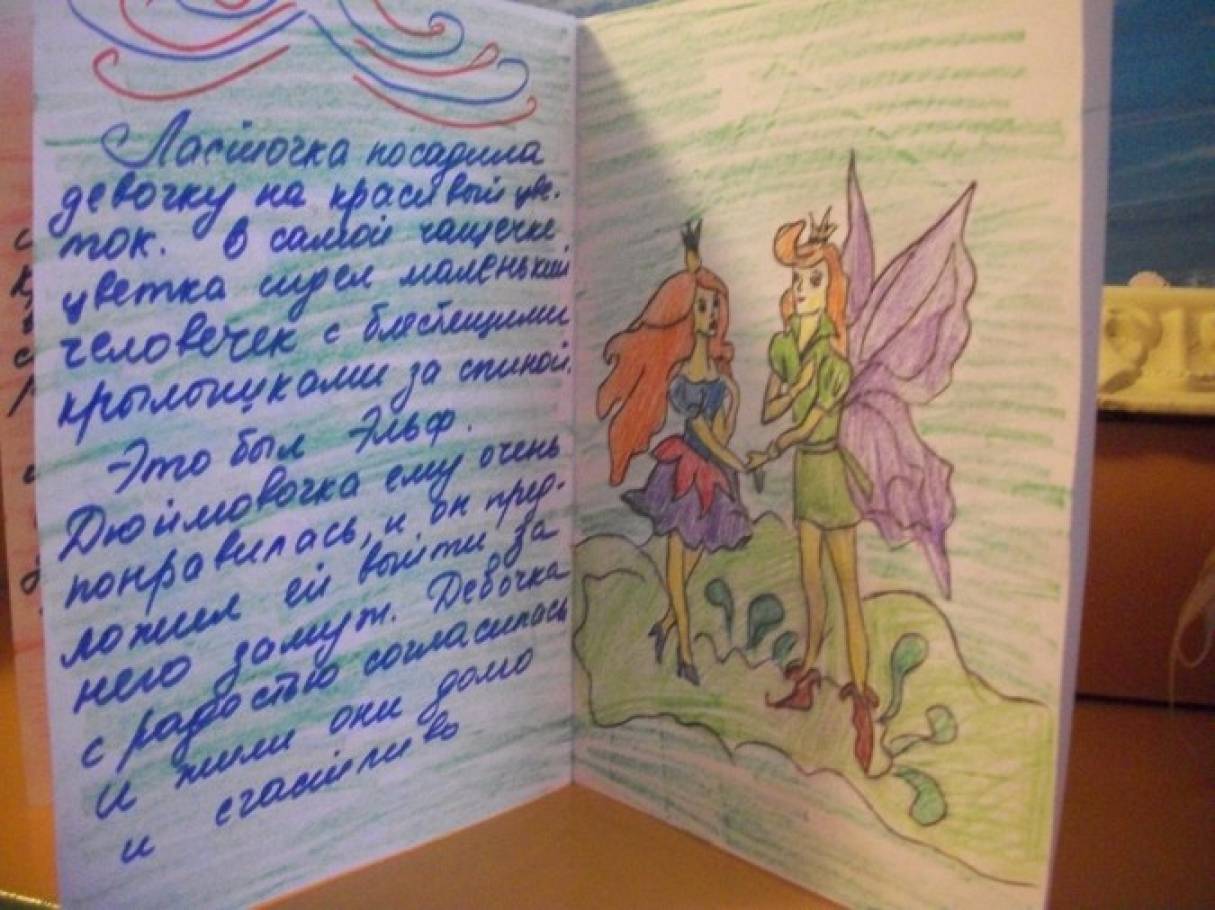 Ласточка посадила
девочку на красивый цве-
ток. В самой чашечке
цветка сидел маленький
человечек с блестящими
крылышками за спиной.
Это был Эльф.
Дюймовочка ему очень
понравилась, и он пред-
ложил ей выйти за
него замуж. Девочка
с радостью согласилась
и жили они долго
и счастливо